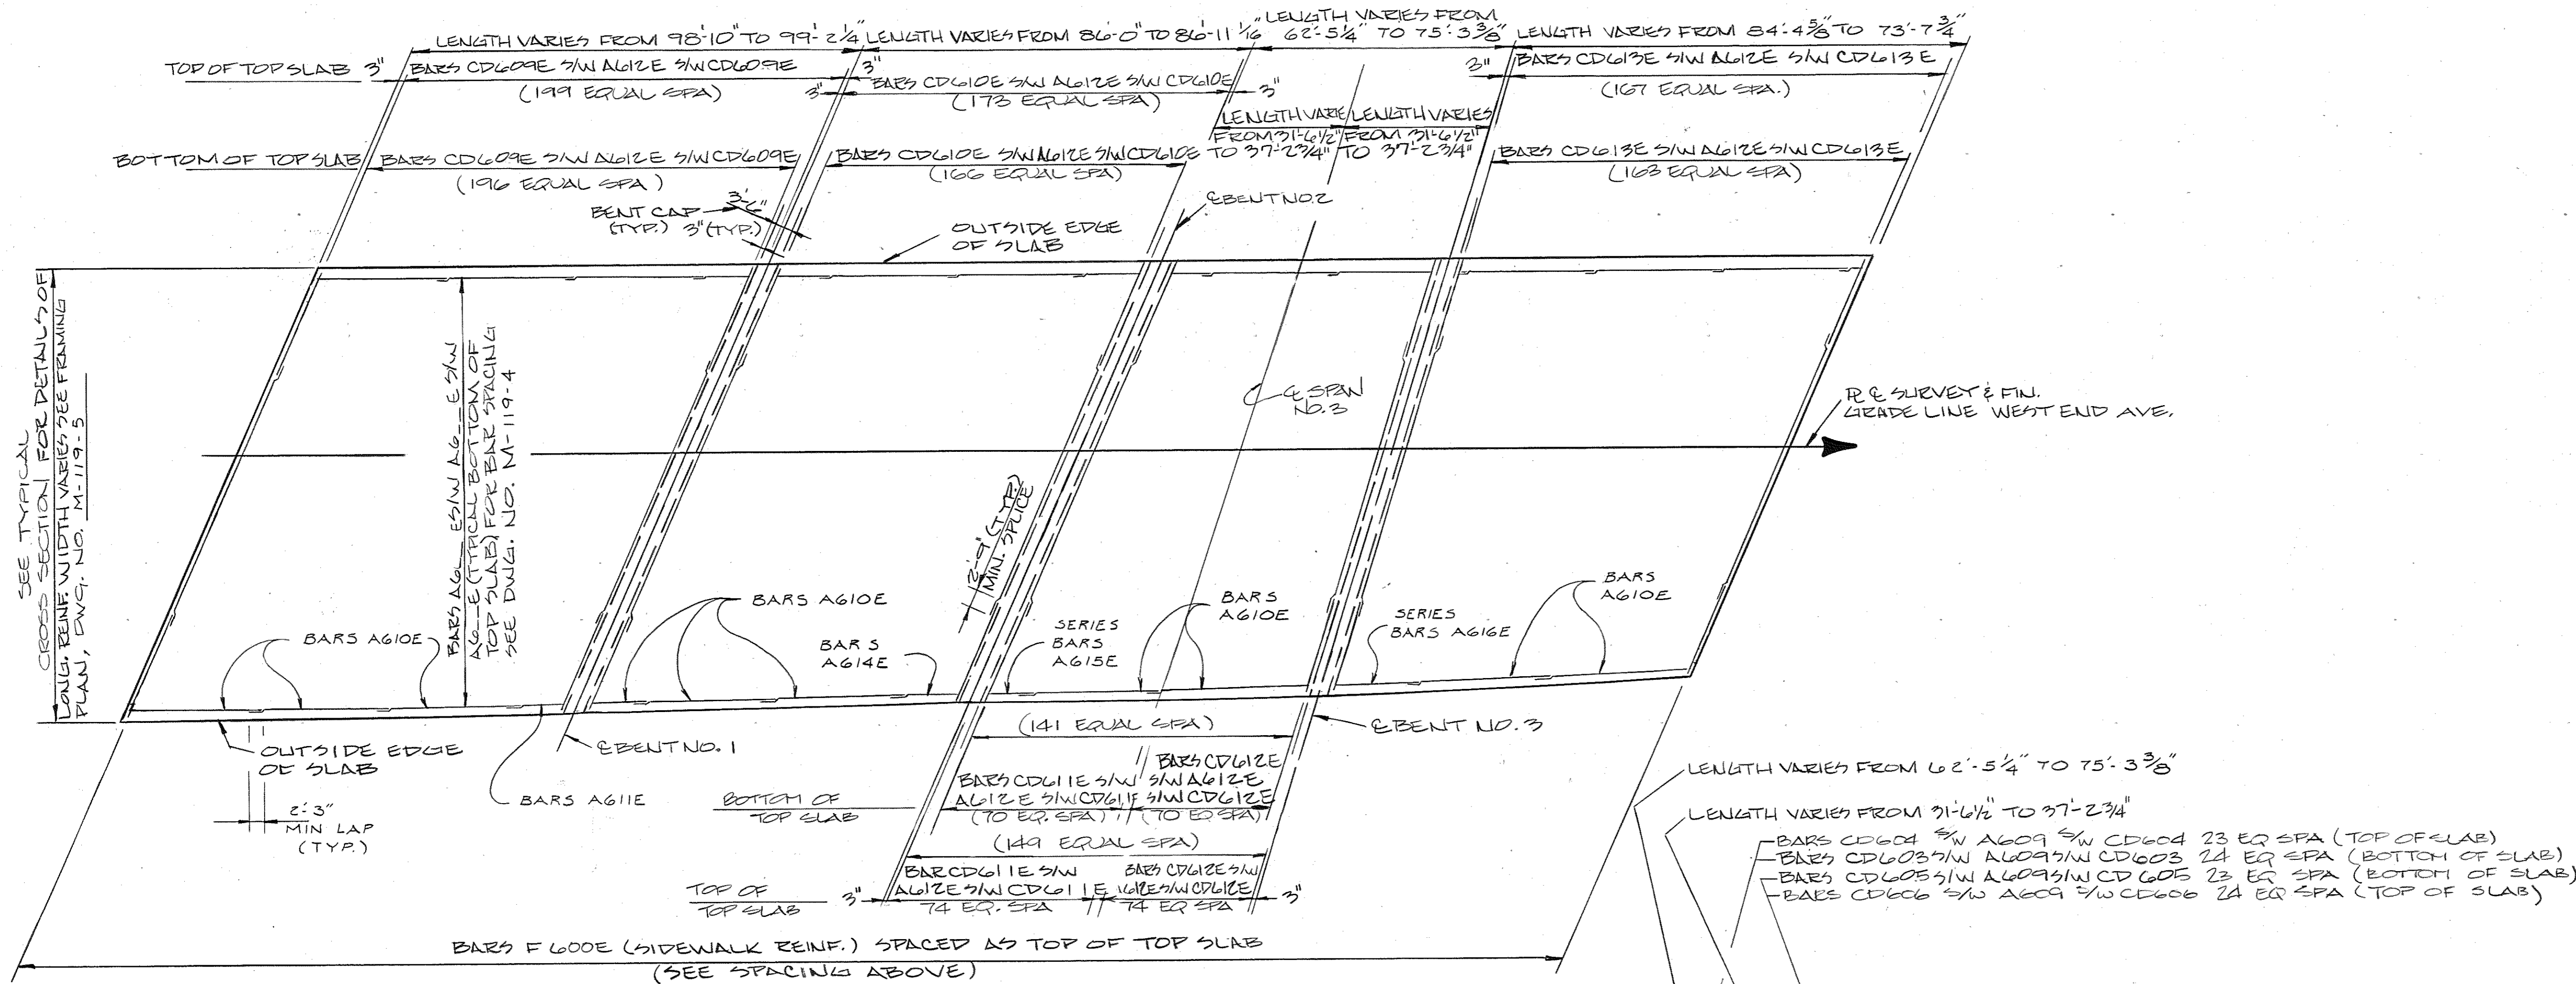 LENGTH VARIES FROM 98'-10" TO 99'-2¼"
LENGTH VARIES FROM 86'-0" TO 86'-11 1/16"
LENGTH VARIES FROM
62'-5¼" TO 75'-3⅜"
LENGTH VARIES FROM 84'-4⅝" TO 73'-7¾"
TOP OF TOP SLAB 3"
BARS CD609E S/W A612E S/W CD609E
(199 EQUAL SPA)
3"
3"
BARS CD610E S/W A612E S/W CD610E
(173 EQUAL SPA)
3"
3"
BARS CD613E S/W A612E S/W CD613E
(167 EQUAL SPA.)
LENGTH VARIE
FROM 31'-6½"
TO 37'-2¾"
LENGTH VARIES
FROM 31'-6½"
TO 37'-2¾"
BOTTOM OF TOP SLAB
BARS CD609E S/W A612E S/W CD609E
(196 EQUAL SPA)
BARS CD610E S/W A612E S/W CD610E
(166 EQUAL SPA)
BARS CD613E S/W A612E S/W CD613E
(163 EQUAL SPA)
BENT CAP
(TYP.)
3"(TYP.)
OUTSIDE EDGE
OF SLAB
℄ BENT NO. 2
SEE TYPICAL
CROSS SECTION FOR DETAILS OF
LONG. REINF. WIDTH VARIES SEE FRAMING
PLAN, DWG. NO. M-119-5
BARS A6__ E S/W A6__E S/W
A6__E (TYPICAL BOTTOM OF
TOP SLAB) FOR BAR SPACING
SEE DWG. NO. M-119-4
℄ SPAN
NO. 3
℄ SURVEY & FIN.
GRADE LINE WEST END AVE.
2'-9" (TYP.)
MIN. SPLICE
BARS A610E
BARS A610E
BARS
A614E
SERIES
BARS
A615E
BARS
A610E
SERIES
BARS A616E
BARS
A610E
OUTSIDE EDGE
OF SLAB
2'-3"
MIN LAP
(TYP.)
BARS A611E
℄ BENT NO. 1
(141 EQUAL SPA)
℄ BENT NO. 3
BOTTOM OF
TOP SLAB
BARS CD611E S/W
A612E S/W CD611E
(70 EQ. SPA)
BARS CD612E
S/W A612E
S/W CD612E
(70 EQ SPA)
(149 EQUAL SPA)
TOP OF
TOP SLAB
3"
BAR CD611E S/W
A612E S/W CD611E
74 EQ. SPA
BARS CD612E S/W
1612E S/W CD612E
74 EQ SPA
3"
BARS F600E (SIDEWALK REINF.) SPACED AS TOP OF TOP SLAB
(SEE SPACING ABOVE)
LENGTH VARIES FROM 62'-5¼" TO 75'-3⅜"
LENGTH VARIES FROM 31'-6½" TO 37'-2¾"
BARS CD604 S/W A609 S/W CD604 23 EQ SPA (TOP OF SLAB)
BARS CD603 S/W A609 S/W CD603 24 EQ SPA (BOTTOM OF SLAB)
BARS CD605 S/W A609 S/W CD605 23 EQ SPA (BOTTOM OF SLAB)
BARS CD606 S/W A609 S/W CD606 24 EQ SPA (TOP OF SLAB)